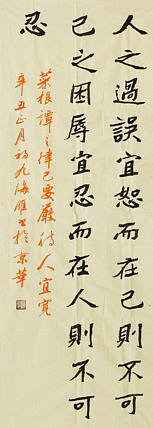 人之過誤宜恕而在己則不可
己之困辱宜忍而在人則不可
忍
菜根譚之律己要嚴待人宜寬
辛丑正月初九海雁書於京華